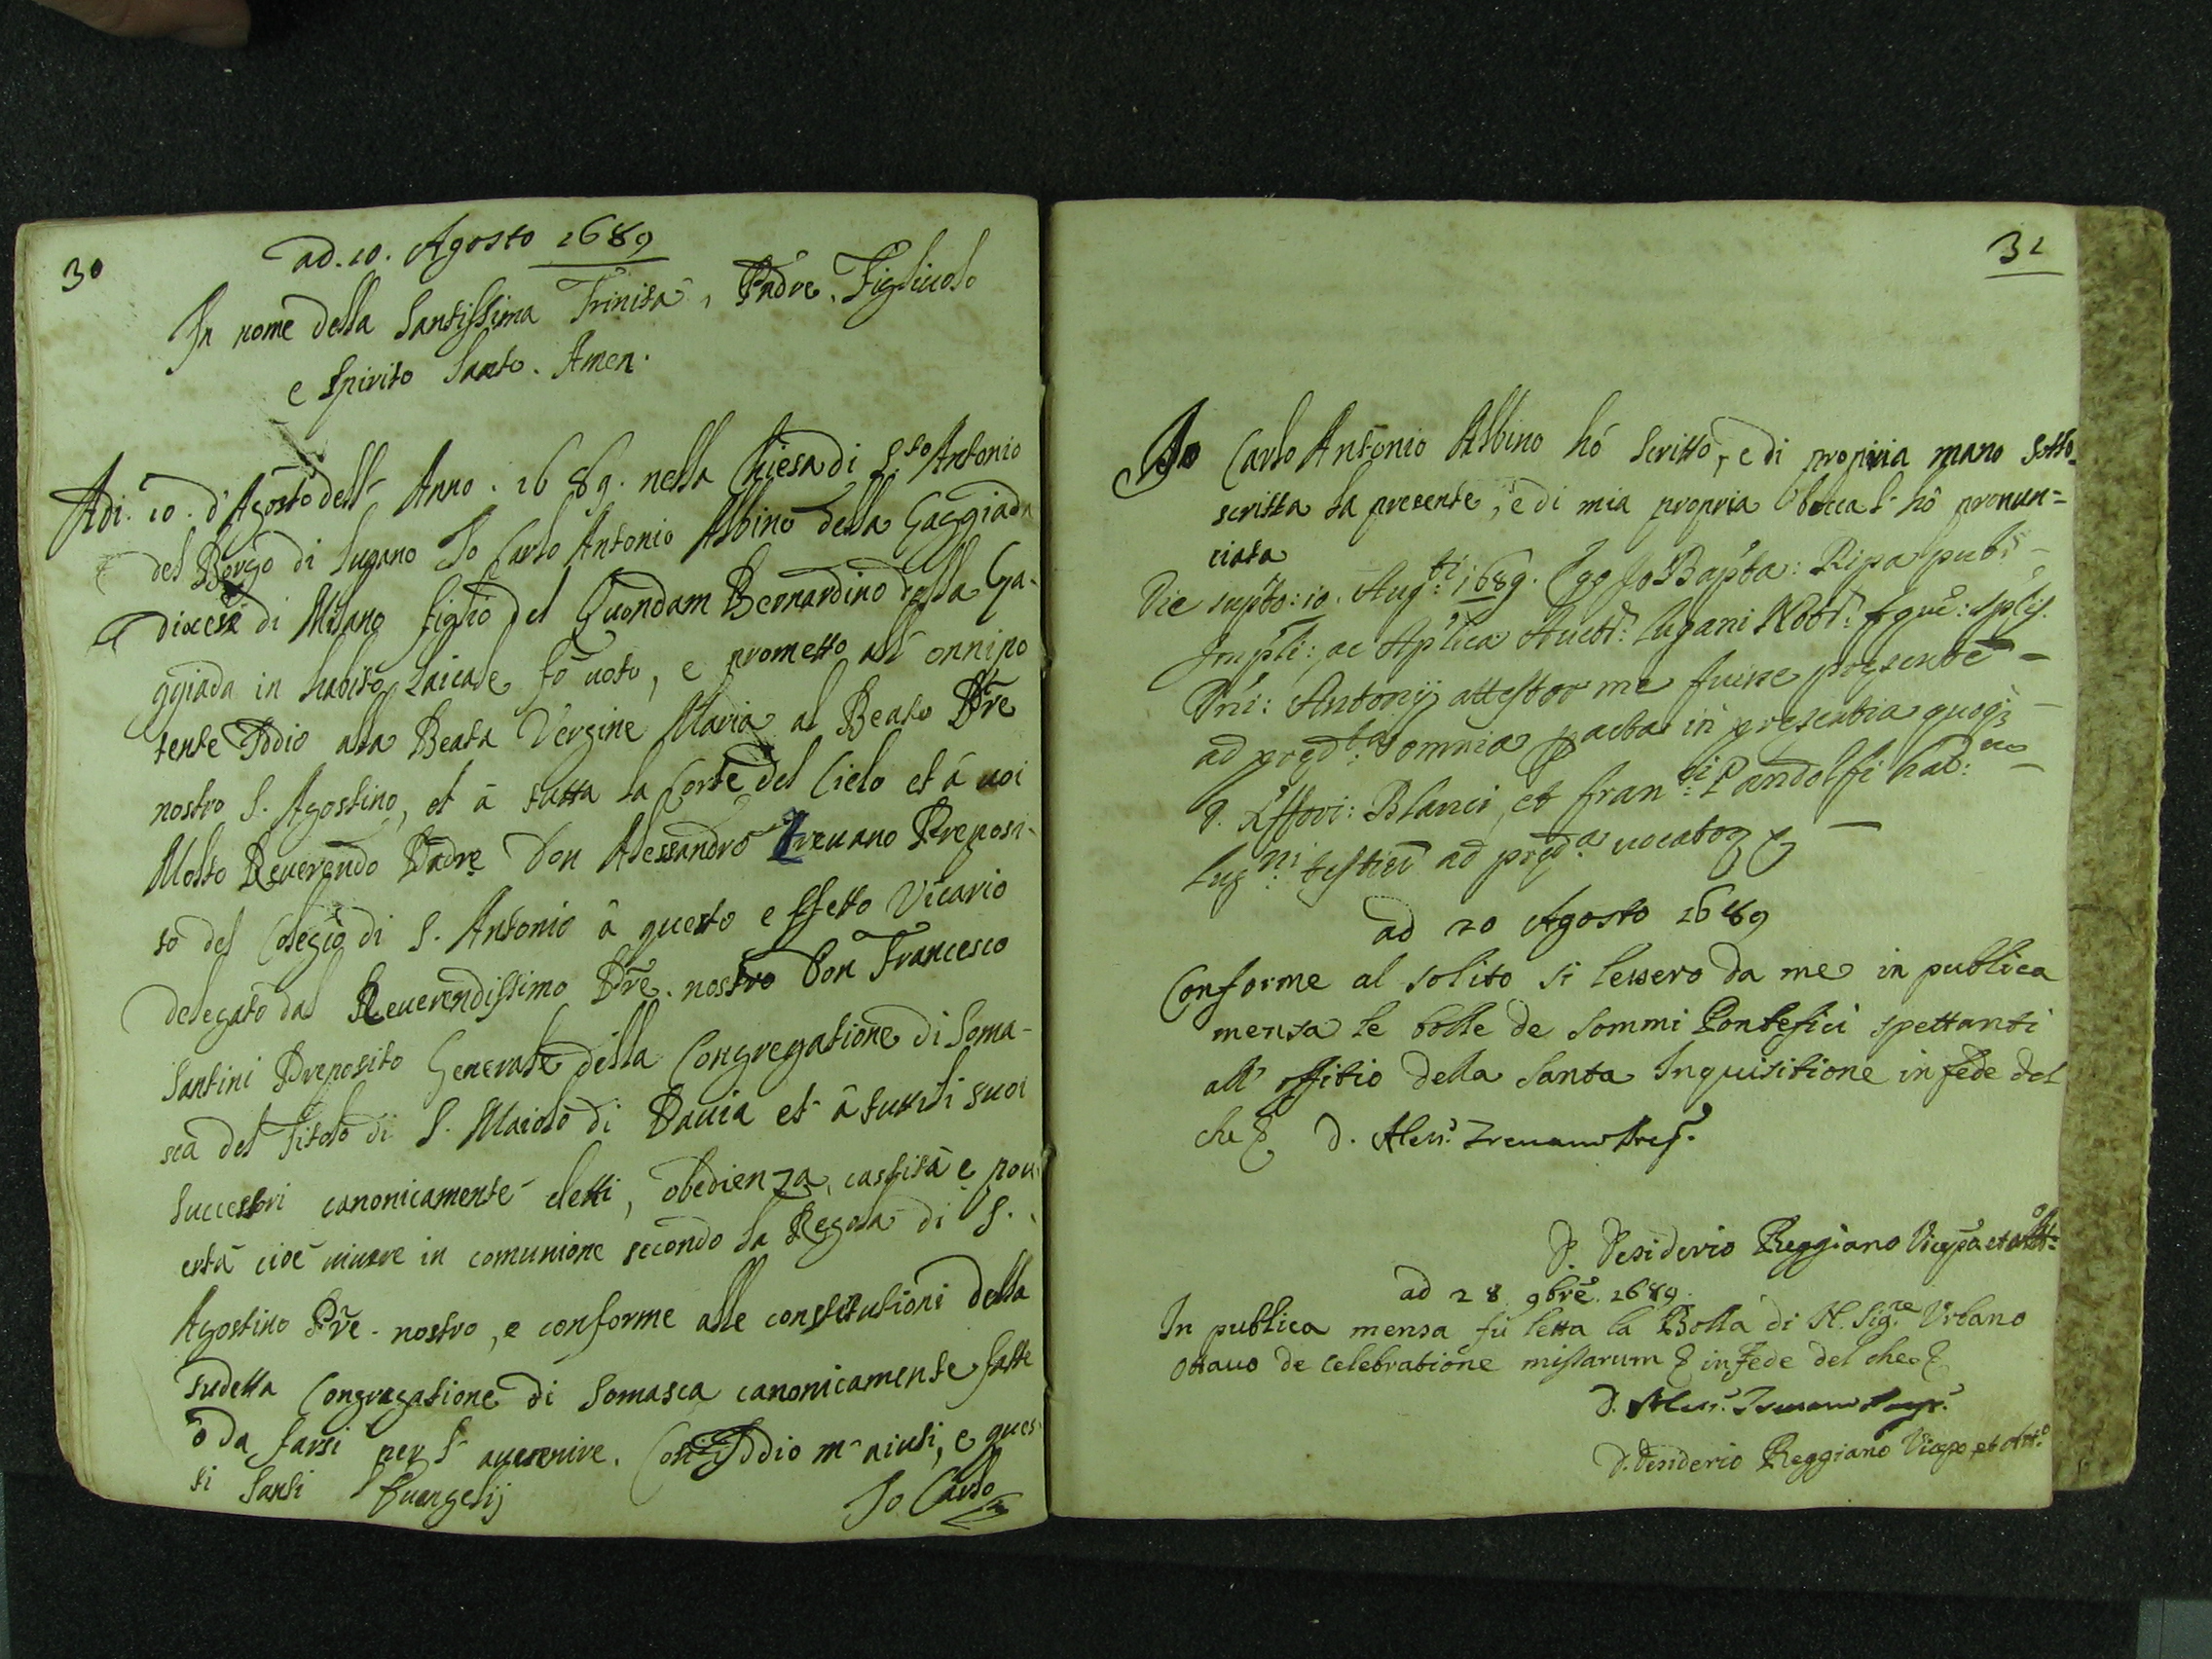 30
ad. 10. Agosto 1689
In nome della Santissima Trinità, Padre, Figliuolo
e Spirito Santo. Amen.
Adi. 10. d'Agosto dell' Anno. 1689. nella Chiesa di S.to Antonio
del Borgo di Lugano Io Carlo Antonio Albino della Gaggiada
diocesi di Milano figlio del Quondam Bernardino della Ga-
ggiada in habito Laicale fò voto, e prometto all' onnipo
tente Iddio alla Beata Vergine Maria al Beato Pre
nostro S. Agostino, et à tutta la Corte del Cielo et à uoi
Molto Reuerendo Padre Don Alessandro Treuano Preposi-
to del Colegio di S. Antonio à questo effetto Vicario
delegato dal Reuerendissimo Pre. nostro Don Francesco
Santini Preposito Generale della Congregatione di Soma-
sca del Titolo di S. Maiolo di Pauia et à tutti li suoi
Successori canonicamente eletti, obedienza, castità e pou
ertà cioè uiuere in comunione secondo la Regola di S.
Agostino Pre. nostro, e conforme alle constitutioni della
sudetta Congregatione di Somasca canonicamente fatte
ò da farsi per l' auuenire. Così Iddio m' aiuti, e ques-
ti Santi Euangelij
Io Carlo
31
Io Carlo Antonio Albino hò scritto, e di propiria mano sotto-
scritta la presente, e di mia propria bocca l' hò pronun=
ciata
Die supto: 10. Aug.ti 1689. Ego Jo Bapta: Ripa pub.s
Impli: ac Aplica Auctt: Lugani Nott:
Dni: Antonij attestor me fuisse presente
ad pred.ta omnia pacta in presentia quoq3
Blanci, et Fran.ci Pandolfi hab:
Lug.ni testiu ad pred.a uocator
ad 20 Agosto 1689
Conforme al solito si lessero da me in publica
mensa le bolle de Sommi Pontefici spettanti
all' offitio della Santa Inquisitione in fede del
che D. Aless. Treuano Prep.
D. Desiderio Reggiano Vicepo et Att.
ad 28. 9bre. 1689.
In publica mensa fù letta la Bolla di N. Sig.re Urbano
Ottauo de celebratione missarum in fede del che
D. Aless. Treuano Prep.
D. Desiderio Reggiano Vicepo et Att.o